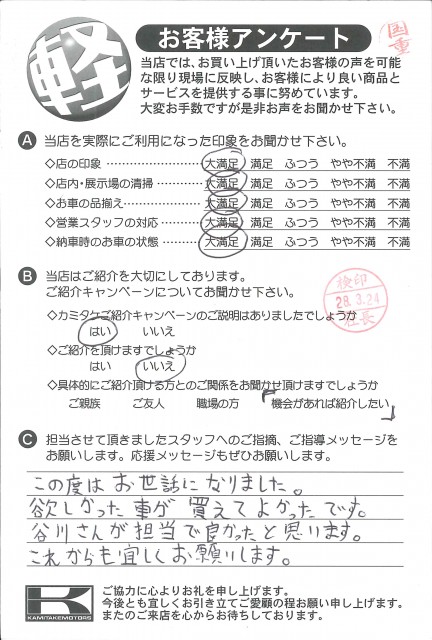 軽
お客様アンケート
国重
当店では、お買い上げ頂いたお客様の声を可能
な限り現場に反映し、お客様により良い商品と
サービスを提供する事に努めています。
大変お手数ですが是非お声をお聞かせ下さい。
A 当店を実際にご利用になった印象をお聞かせ下さい。
◇店の印象 ………………… 大満足 満足 ふつう やや不満 不満
◇店内・展示場の清掃 ………… 大満足 満足 ふつう やや不満 不満
◇お車の品揃え ……………… 大満足 満足 ふつう やや不満 不満
◇営業スタッフの対応 ………… 大満足 満足 ふつう やや不満 不満
◇納車時のお車の状態 ………… 大満足 満足 ふつう やや不満 不満
B 当店はご紹介を大切にしております。
ご紹介キャンペーンについてお聞かせ下さい。
検印
28.3.24
社長
◇カミタケご紹介キャンペーンのご説明はありましたでしょうか
はい いいえ
◇ご紹介を頂けますでしょうか
はい いいえ
◇具体的にご紹介頂ける方とのご関係をお聞かせ頂けますでしょうか
ご親族 ご友人 職場の方 「機会があれば紹介したい」
C 担当させて頂きましたスタッフへのご指摘、ご指導メッセージを
お願いします。応援メッセージもぜひお願いします。
この度はお世話になりました。
欲しかった車が買えてよかったです。
谷川さんが担当で良かったと思います。
これからも宜しくお願いします。
K
KAMITAKEMOTORS
ご協力に心よりお礼を申し上げます。
今後とも宜しくお引き立てご愛顧の程お願い申し上げます。
またのご来店を心からお待ちしております。